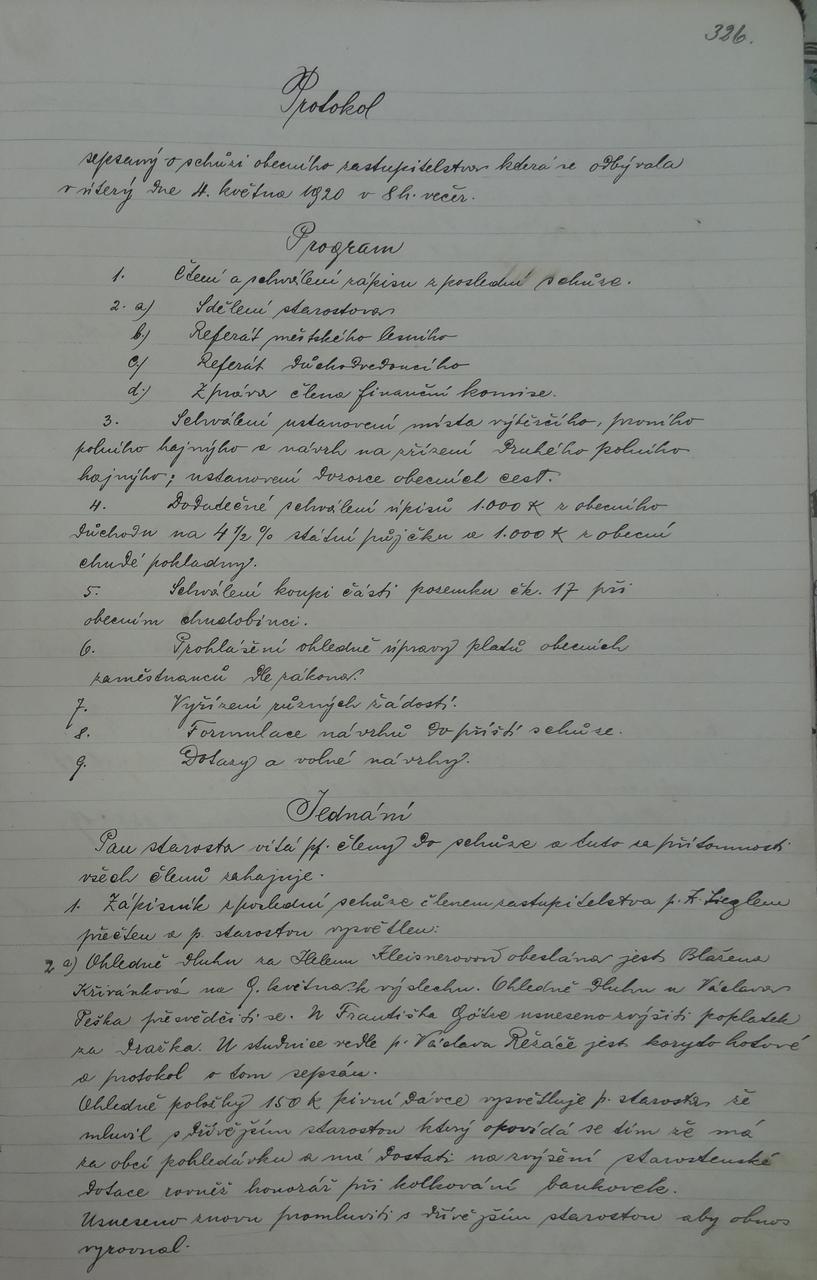 326.
Protokol
sepsaný o schůzi obecního zastupitelstva která se odbývala
v úterý dne 4. května 1920 v 8 h. večer.
Program
1. Čtení a schválení zápisu z poslední schůze.
2. a) Sdělení starostova
b) Referát městského lesního
c) Referát důchodvedoucího
d) Zpráva člena finanční komise.
3. Schválení ustanovení místa výběrčího, prvního
polního hajného a návrh na zřízení druhého polního
hajného; ustanovení dozorce obecních cest.
4. Dodatečné schválení úpisů 1.000 K z obecního
důchodu na 4 1/2 % státní půjčku a 1.000 K z obecní
chudé pokladny.
5. Schválení koupi části pozemku čk. 17 při
obecním chudobinci.
6. Prohlášení ohledně úpravy platů obecních
zaměstnanců dle zákona.
7. Vyřízení různých žádostí.
8. Formulace návrhů do příští schůze.
9. Dotazy a volné návrhy.
Jednání
Pan starosta vítá pp. členy do schůze a tuto za přítomnosti
všech členů zahajuje.
1. Zápisník z poslední schůze členem zastupitelstva p. F. Zieglem
přečten a p. starostou vysvětlen:
2 a) Ohledně dluhu za Helenu Kleisnerovou obeslána jest Blažena
Křivánková na 9. května k výslechu. Ohledně dluhu u Václava
Peška přesvědčiti se. U Františka Götze usneseno zvýšiti poplatek
za Draška. U studnice vedle p. Václava Řežáče jest koryto hotové
a protokol o tom sepsán.
Ohledně položky 150 K pivní dávce vysvětluje p. starosta že
mluvil s dřívějším starostou který opovídá se tím že má
za obcí pohledávku a má dostati na zvýšení starostenské
dotace rovněž honorář při kolkování bankovek.
Usneseno znovu promluviti s dřívějším starostou aby obnos
vyrovnal.